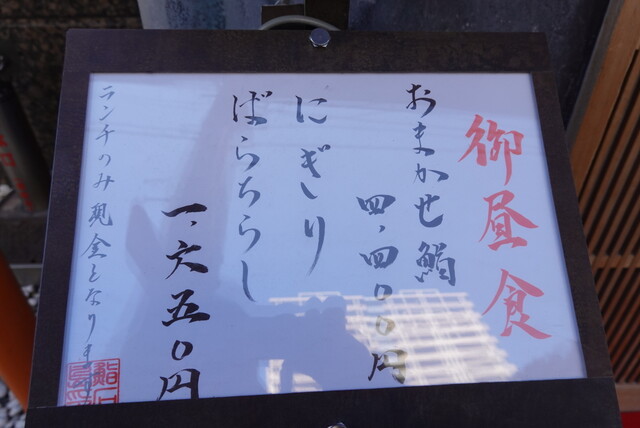 御昼食
おまかせ鮨
四、四〇〇円
にぎり
ばらちらし
一、六五〇円
ランチのみ現金となります